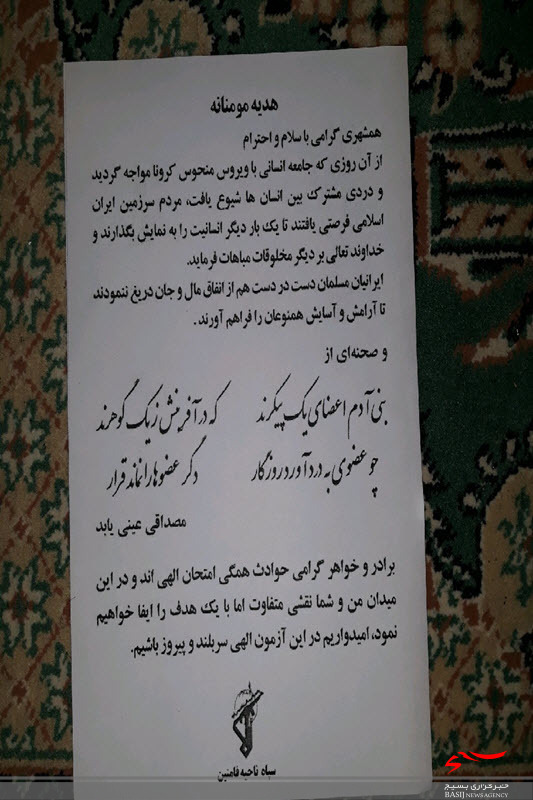 هدیه مومنانه
همشهری گرامی با سلام و احترام
از آن روزی که جامعه انسانی با ویروس منحوس کرونا مواجه گردید
و دردی مشترک بین انسان ها شیوع یافت، مردم سرزمین ایران
اسلامی فرصتی یافتند تا یک بار دیگر انسانیت را به نمایش بگذارند و
خداوند تعالی بر دیگر مخلوقات مباهات فرماید.
ایرانیان مسلمان دست در دست هم از انفاق مال و جان دریغ ننمودند
تا آرامش و آسایش همنوعان را فراهم آورند.
و صحنه‌ای از
بنی آدم اعضای یک پیکرند که در آفرینش ز یک گوهرند
چو عضوی به درد آورد روزگار دگر عضوها را نماند قرار
مصداقی عینی یابد
برادر و خواهر گرامی حوادث همگی امتحان الهی اند و در این
میدان من و شما نقشی متفاوت اما با یک هدف را ایفا خواهیم
نمود، امیدواریم در این آزمون الهی سربلند و پیروز باشیم.
سپاه ناحیه فامنین
بسیج
خبرگزاری بسیج
BASIJ NEWS AGENCY